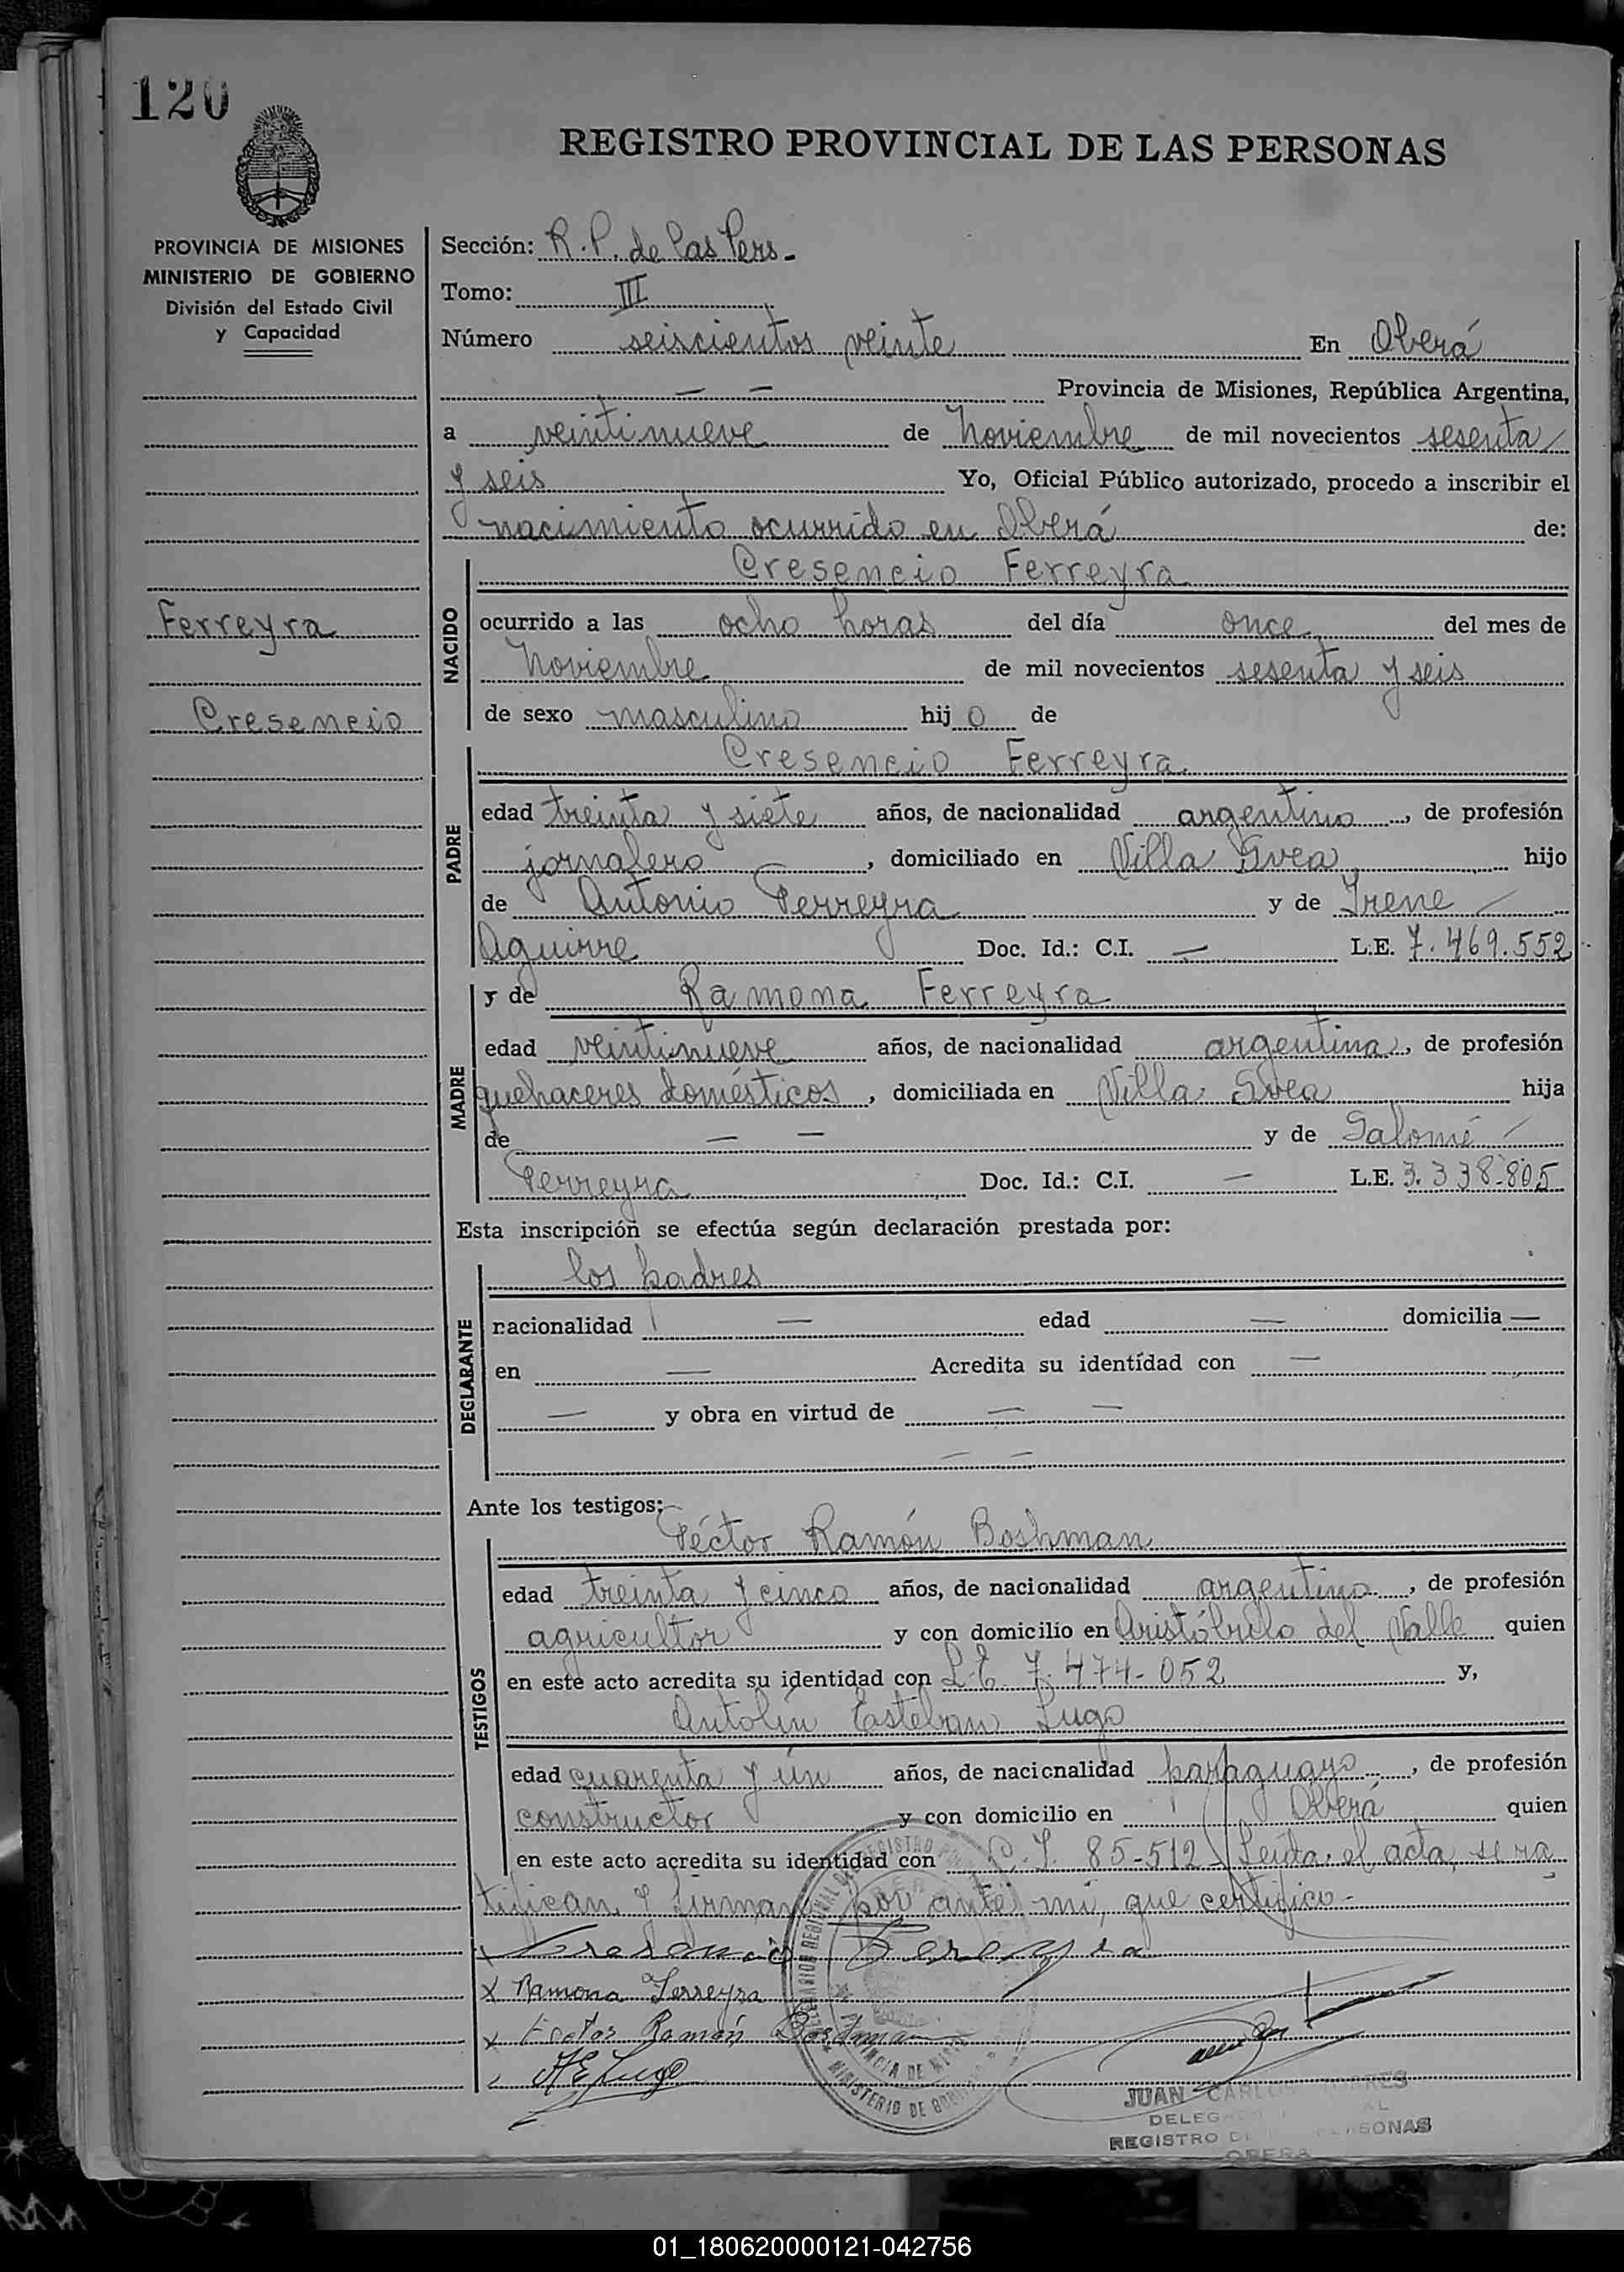 120
REGISTRO PROVINCIAL DE LAS PERSONAS
PROVINCIA DE MISIONES
MINISTERIO DE GOBIERNO
División del Estado Civil
y Capacidad
Ferreyra
Cresencio
Sección: R.P. de las Pers.-
Tomo: III
Número seiscientos veinte En Oberá
— — Provincia de Misiones, República Argentina,
a veintinueve de Noviembre de mil novecientos sesenta
y seis Yo, Oficial Público autorizado, procedo a inscribir el
nacimiento ocurrido en Oberá de:
NACIDO
Cresencio Ferreyra
ocurrido a las ocho horas del día once del mes de
Noviembre de mil novecientos sesenta y seis
de sexo masculino hijo de
PADRE
Cresencio Ferreyra
edad treinta y siete años, de nacionalidad argentino, de profesión
jornalero, domiciliado en Villa Svea hijo
de Antonio Ferreyra y de Irene
Aguirre Doc. Id.: C.I. — L.E. 7.469.552
MADRE
y de Ramona Ferreyra
edad veintinueve años, de nacionalidad argentina, de profesión
quehaceres domésticos, domiciliada en Villa Svea hija
de — — y de Salomé
Ferreyra Doc. Id.: C.I. — L.E. 3.338.805
Esta inscripción se efectúa según declaración prestada por:
DECLARANTE
los padres
nacionalidad — edad — domicilia —
en — Acredita su identidad con —
— y obra en virtud de — —
— —
Ante los testigos:
TESTIGOS
Héctor Ramón Boshman
edad treinta y cinco años, de nacionalidad argentino, de profesión
agricultor y con domicilio en Aristóbulo del Valle quien
en este acto acredita su identidad con L.E. 7.474-052 y,
Antolín Esteban Lugo
edad cuarenta y ún años, de nacionalidad paraguayo, de profesión
constructor y con domicilio en Oberá quien
en este acto acredita su identidad con C.I. 85-512. Leída el acta, se ra
tifican y firman por ante mí, que certifico.-
x Cresencio Fereyra
x Ramona Ferreyra
x Ector Ramón
AELugo
MINISTERIO DE
JUAN CARLOS
REGISTRO DE PERSONAS
OBERA
01_180620000121-042756